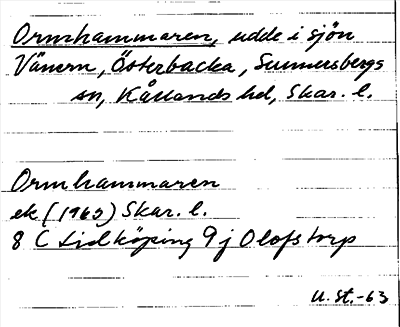 Ormhammaren, udde i sjön
Vänern, Österbacka, Sunnersbergs
sn, Kållands hd, Skar. l.
Ormhammaren
ek (1963) Skar. l.
8 C Lidköping 9 j Olofstorp
U. St. -63